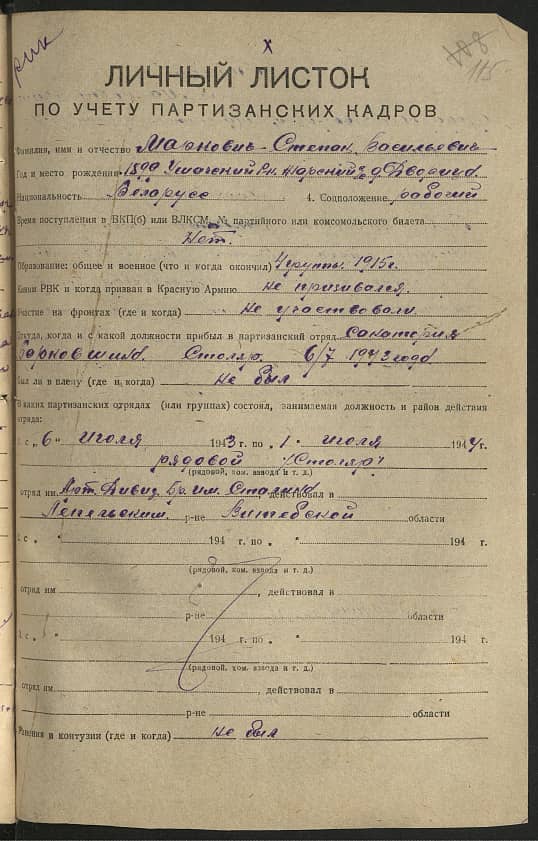 рик
х
118
115
ЛИЧНЫЙ ЛИСТОК
ПО УЧЕТУ ПАРТИЗАНСКИХ КАДРОВ
Фамилия, имя и отчество Маркович Степан Васильевич
Год и место рождения 1899 Ушачский Рн. Жарский д. Дворец
Национальность Беларусс 4. Соцположение рабочий
Время поступления в ВКП(б) или ВЛКСМ, № партийного или комсомольского билета
Нет.
Образование: общее и военное (что и когда окончил) 4 группы. 1915 г.
Каким РВК и когда призван в Красную Армию не призивался.
Участие на фронтах (где и когда) Не участвовали
Откуда, когда и с какой должности прибыл в партизанский отряд санатория
Столяр. 6/7 1943 года
Был ли в плену (где и когда) не был
В каких партизанских отрядах (или группах) состоял, занимаемая должность и район действия
отряда:
1. с „6" июля 1943 г. по „1" июля 1944 г.
рядовой "Столяр"
(рядовой, ком. взвода и т. д.)
отряд им. Бр. им. Сталина действовал в
Лепельским. р-не Витебской области
2. с „ " 194 г. по „ " 194 г.
(рядовой, ком. взвода и т. д.)
отряд им , действовал в
р-не области
3. с „ " 194 г. по „ " 194 г.
(рядовой, ком. взвода и т. д.)
отряд им. , действовал в
р-не области
Ранения и контузии (где и когда) не был